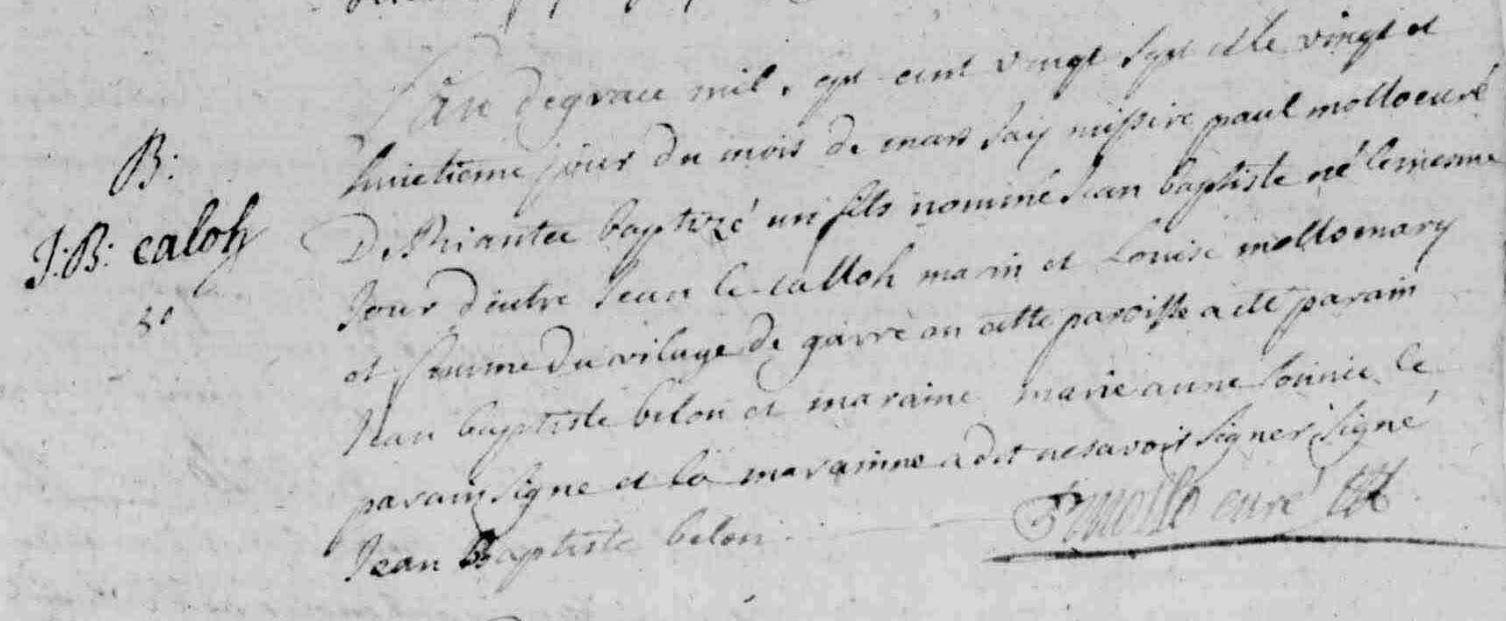 L'an de grace mil sept cent vingt sept et le vingt et
huictieme jour du mois de mars Je missire paul mollo curé
B:
De Riantec baptizé un fils nommé Jean baptiste né le mesme
J: B: caloh
Jour d'entre Jean le calloh marin et Louise mollo mary
et femme du vilage de gavre en cette paroisse a été parain
Jean baptiste belon et maraine marie anne le
parain signe et la maraine a dit ne savoir signer signé
Jean Baptiste belon P mollo curé